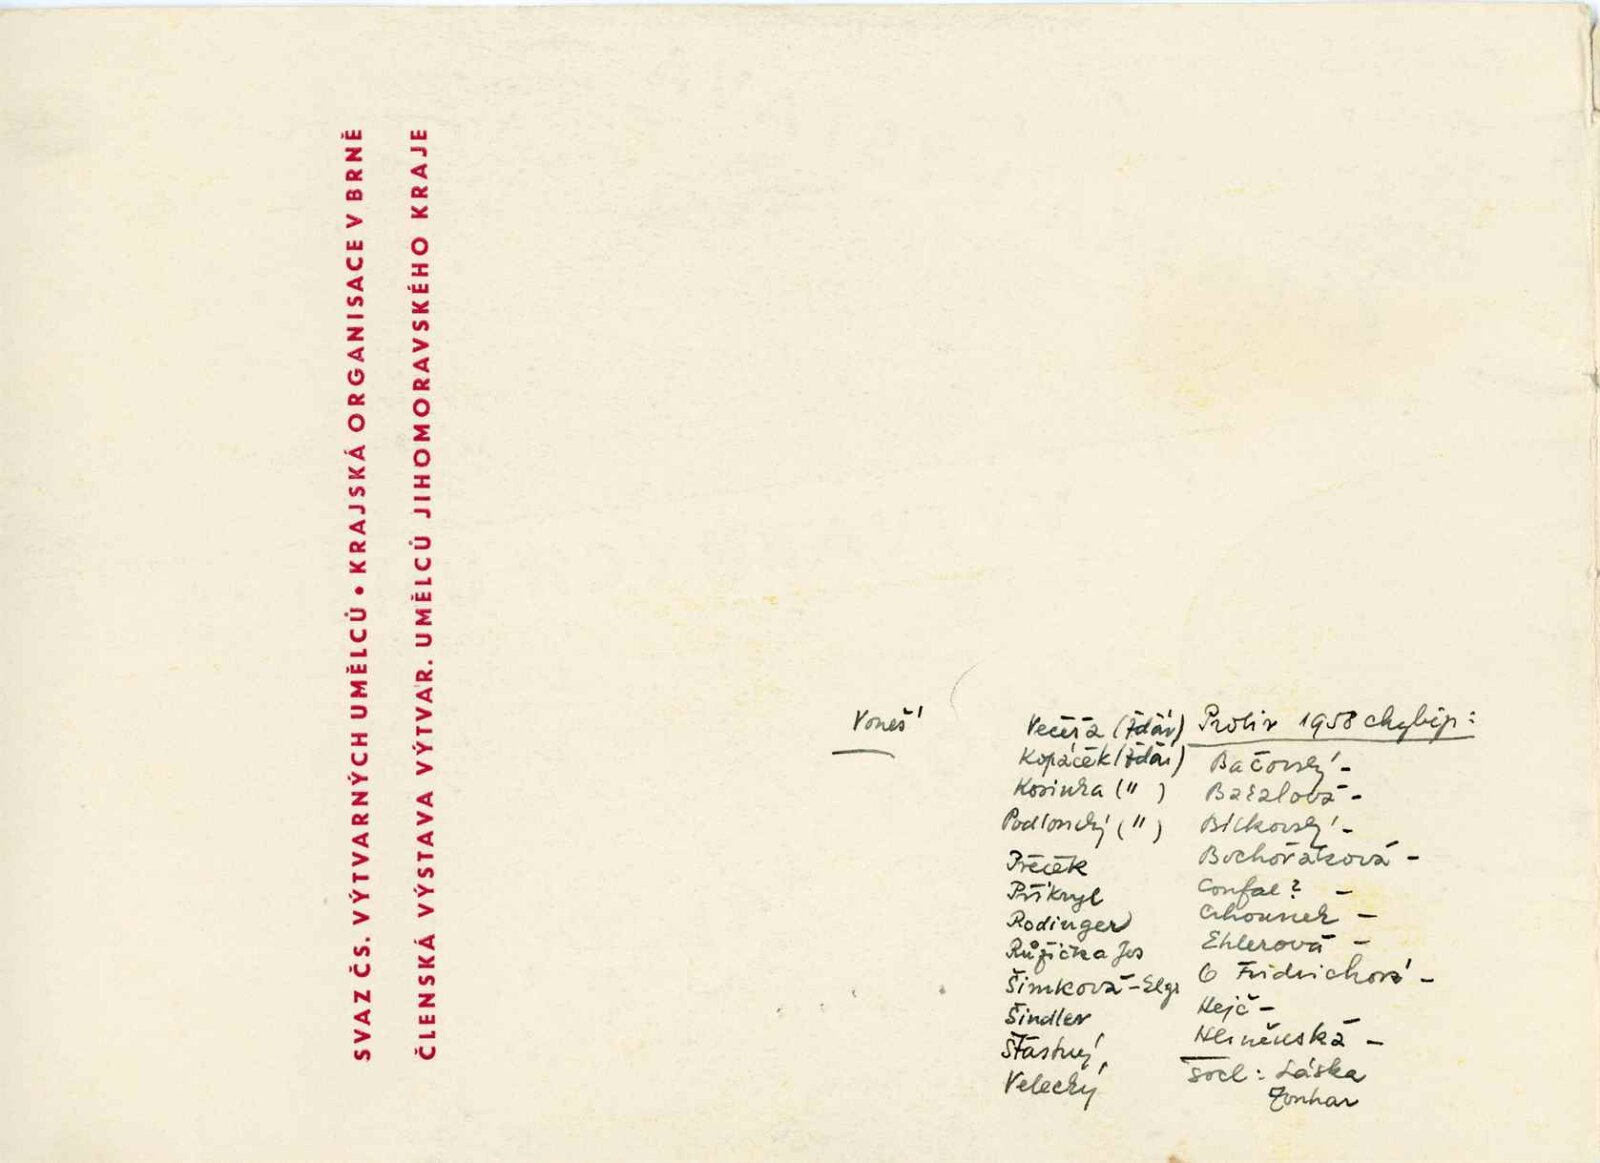 SVAZ ČS. VÝTVARNÝCH UMĚLCŮ • KRAJSKÁ ORGANISACE V BRNĚ
ČLENSKÁ VÝSTAVA VÝTVAR. UMĚLCŮ JIHOMORAVSKÉHO KRAJE
Voneš
Večeřa (Žďár)
Kopáček (Žďár)
Kosinka (")
Podlouský (")
Přeček
Přikryl
Rodinger
Růžička Jos
Šimková-Elgr
Šindler
Šťastný
Velecký
Proti r 1958 chybějí:
Bačovský -
Bařalová -
Bílkovský -
Bochořáková -
Confal? -
Chounek -
Ehlerová -
Fridrichová -
Hejč -
Hliněnská -
socl: Láska
Zonhar